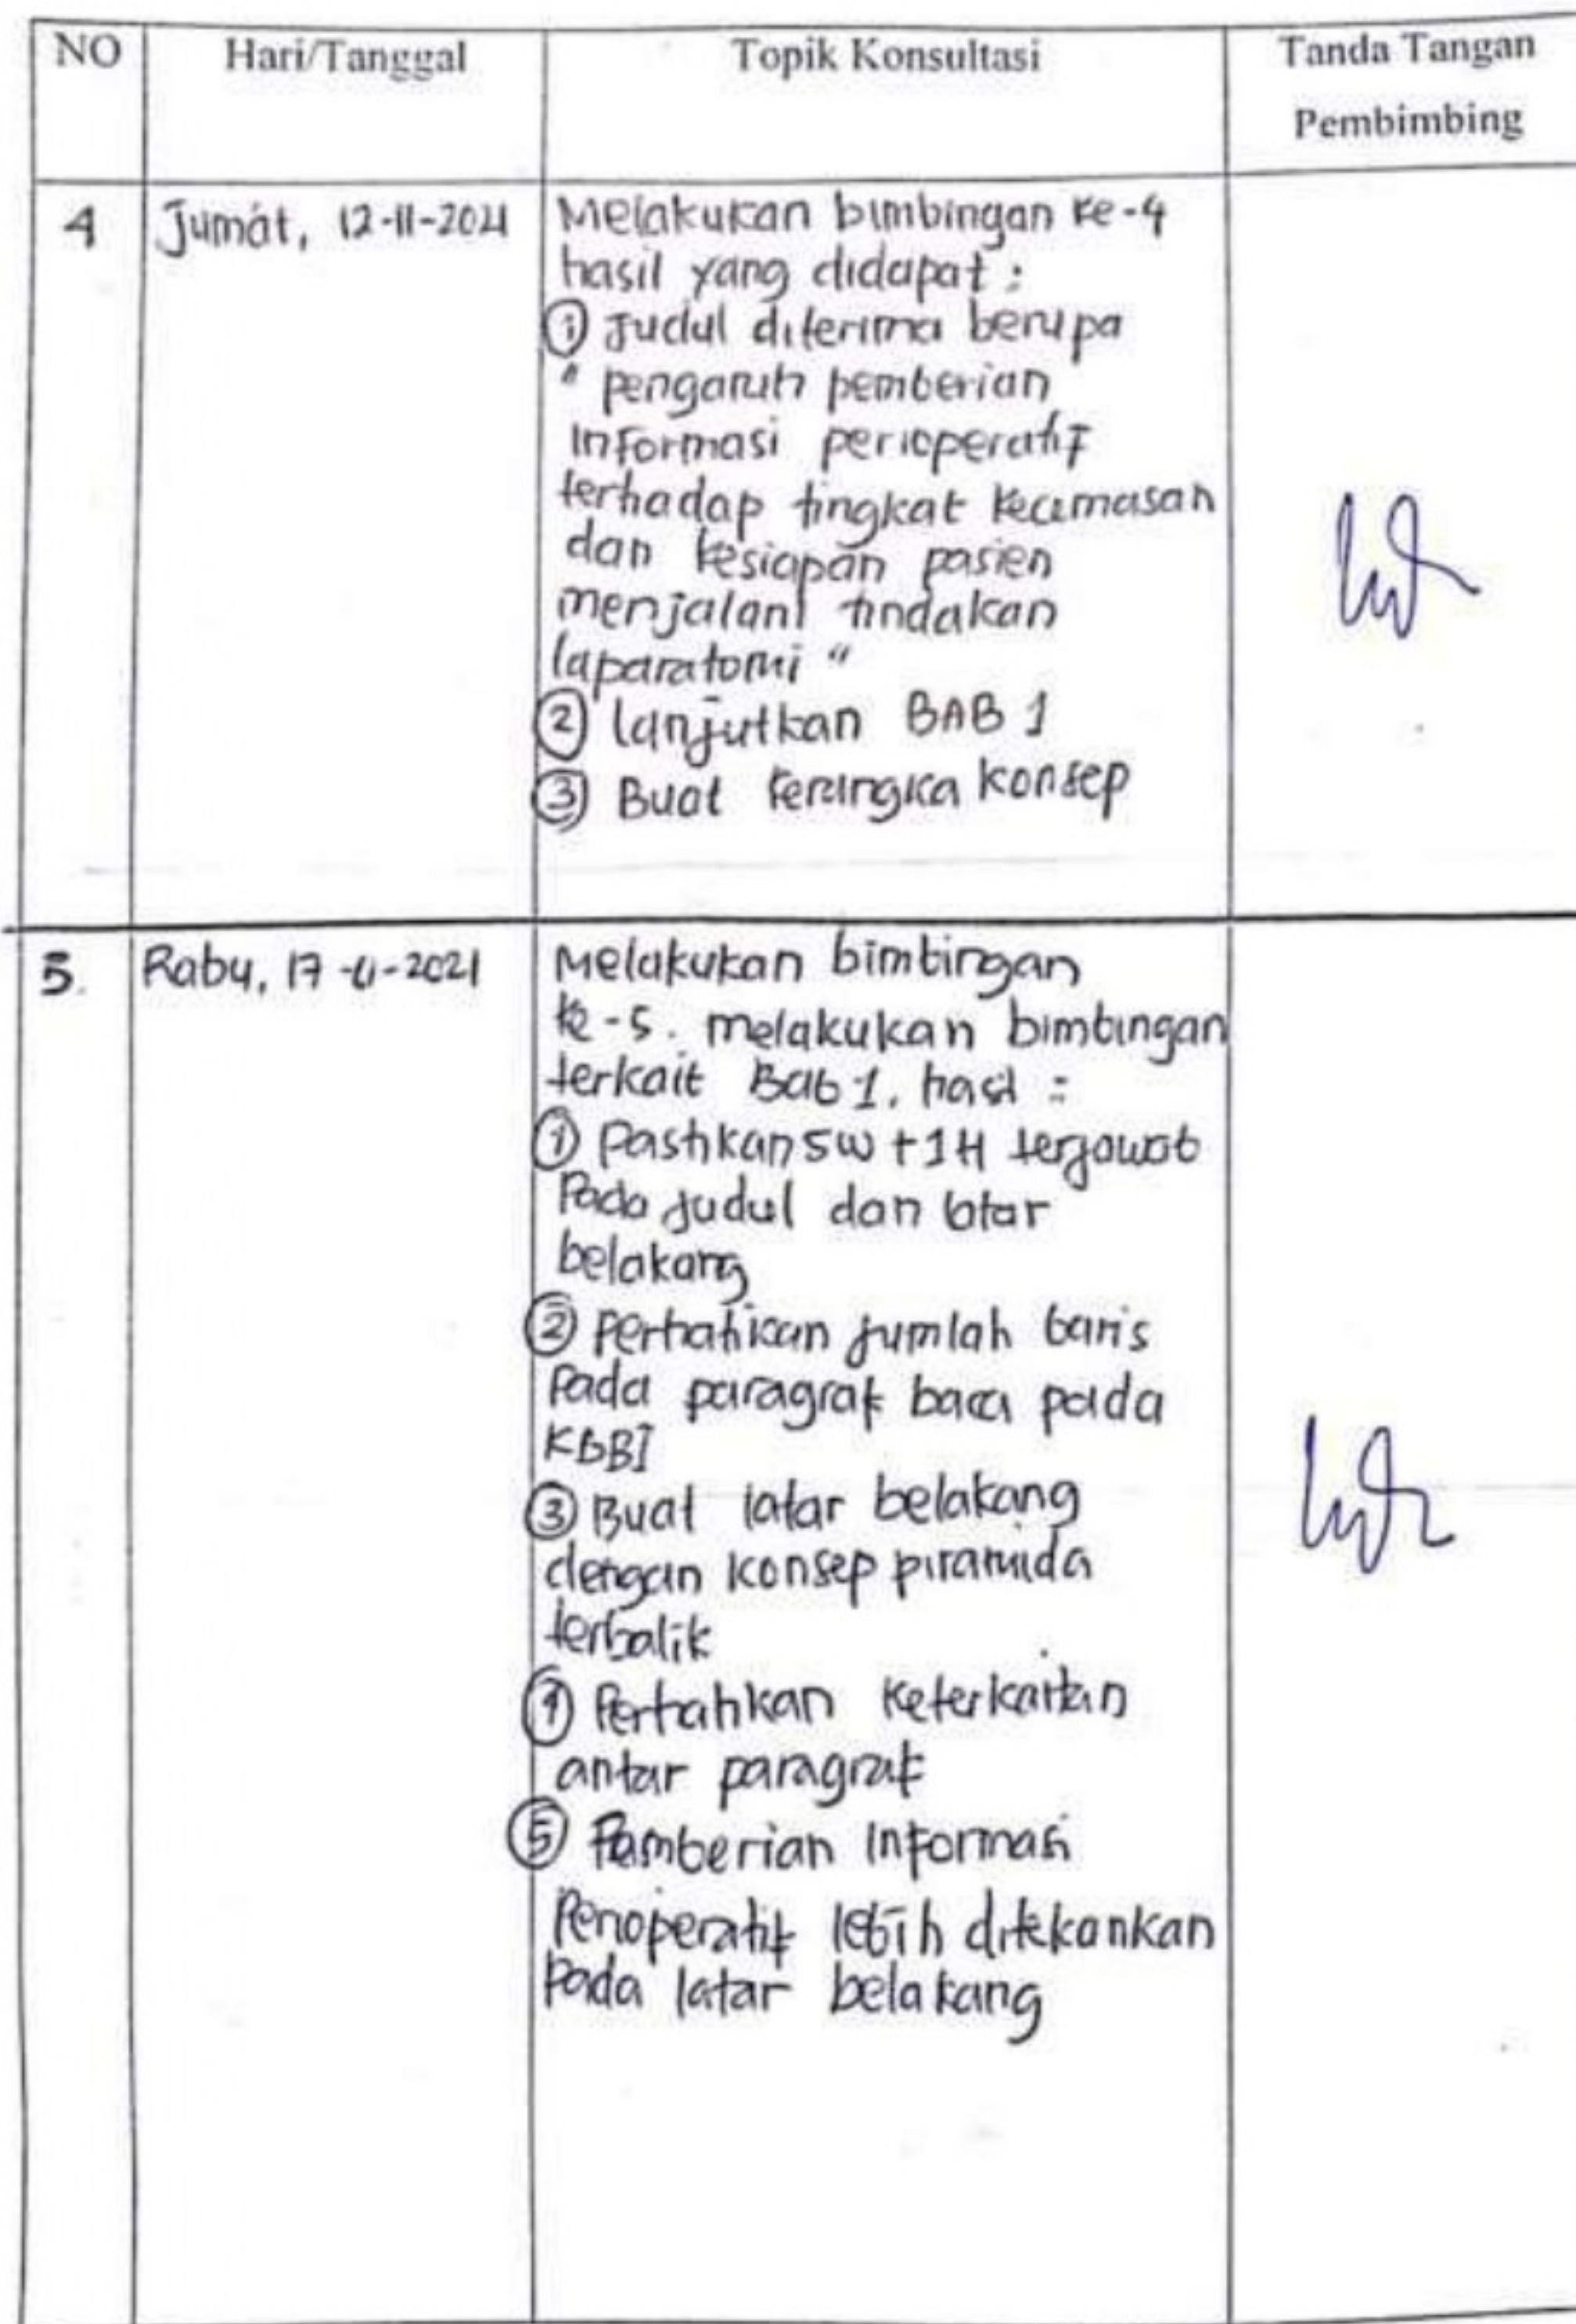 NO Hari/Tanggal Topik Konsultasi Tanda Tangan
Pembimbing
4 Jumát, 12-11-2021 Melakukan bimbingan ke-4
hasil yang didapat :
① Judul diterima berupa
" pengaruh pemberian
Informasi perioperatif
terhadap tingkat kecemasan
dan kesiapan pasien
menjalani tindakan
laparatomi "
② lanjutkan BAB 1
③ Buat kerangka konsep
5. Rabu, 17-11-2021 Melakukan bimbingan
ke-5. melakukan bimbingan
terkait Bab 1. hasil :
① Pastikan 5W + 1H terjawab
Pada judul dan latar
belakang
② Perhatikan jumlah baris
Pada paragraf baca pada
KBBI
③ Buat latar belakang
dengan konsep piramida
terbalik
④ Perhatikan keterkaitan
antar paragraf
⑤ Pemberian Informasi
Perioperatif lebih ditekankan
Pada latar belakang